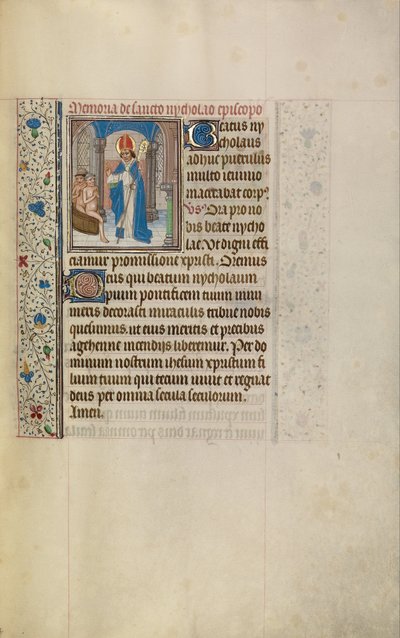 Memoria de sancto nycholao episcopo
Beatus ny
cholaus
adhuc puerulus
multo ieiunio
macerabat corpꝰ
vs̄. Ora pro no
bis beate nycho
lae. Vt digni effi
ciamur promissione xpristi. Oremus
Deus qui beatum nycholaum
pium pontificem tuum innu
meris decorasti miraculis tribue nobis
quesumus. ut eius meritis et precibus
a gehenne incendijs liberemur. Per do
minum nostrum ihesum xpristum fi
lium tuum qui tecum uiuit et regnat
deus per omnia secula seculorum.
Amen.